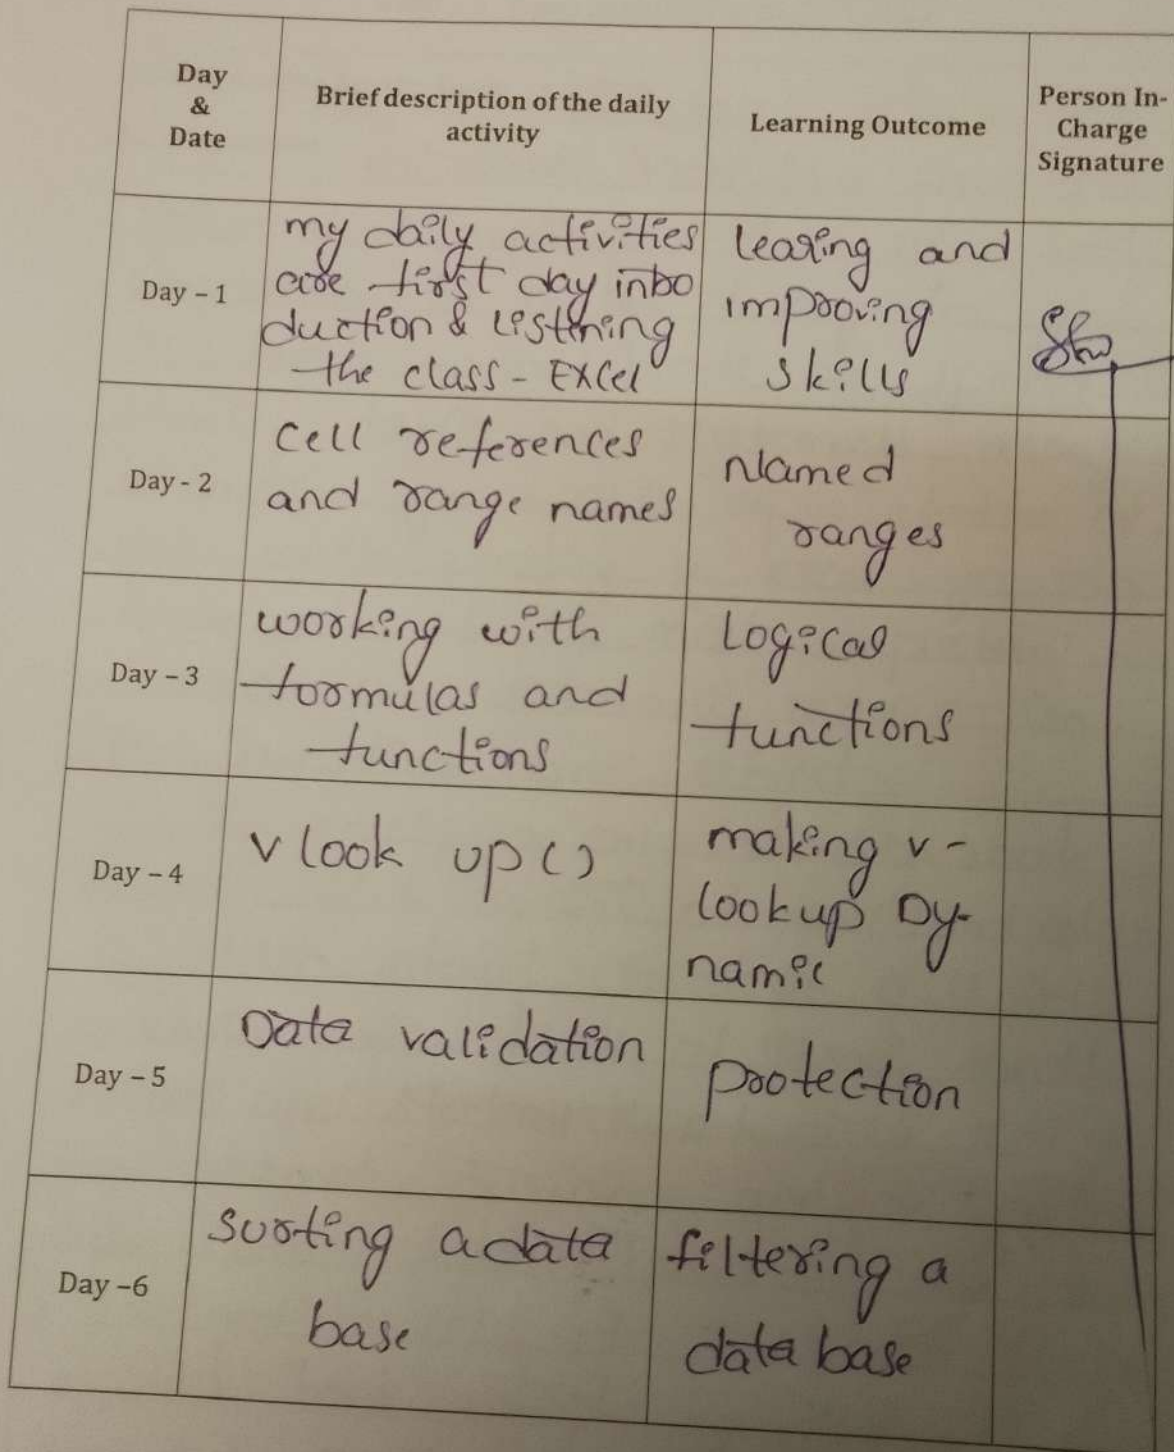 Day
&
Date
Brief description of the daily
activity
Learning Outcome
Person In-
Charge
Signature
Day – 1
my daily activities
are first day intro
duction & listning
the class - EXCel
learing and
improving
skills
Day - 2
cell references
and range names
Named
ranges
Day – 3
working with
formulas and
functions
Logical
functions
Day – 4
v look up ()
making v-
lookup Dy-
namic
Day – 5
Data validation
protection
Day –6
sorting a data
base
filtering a
data base